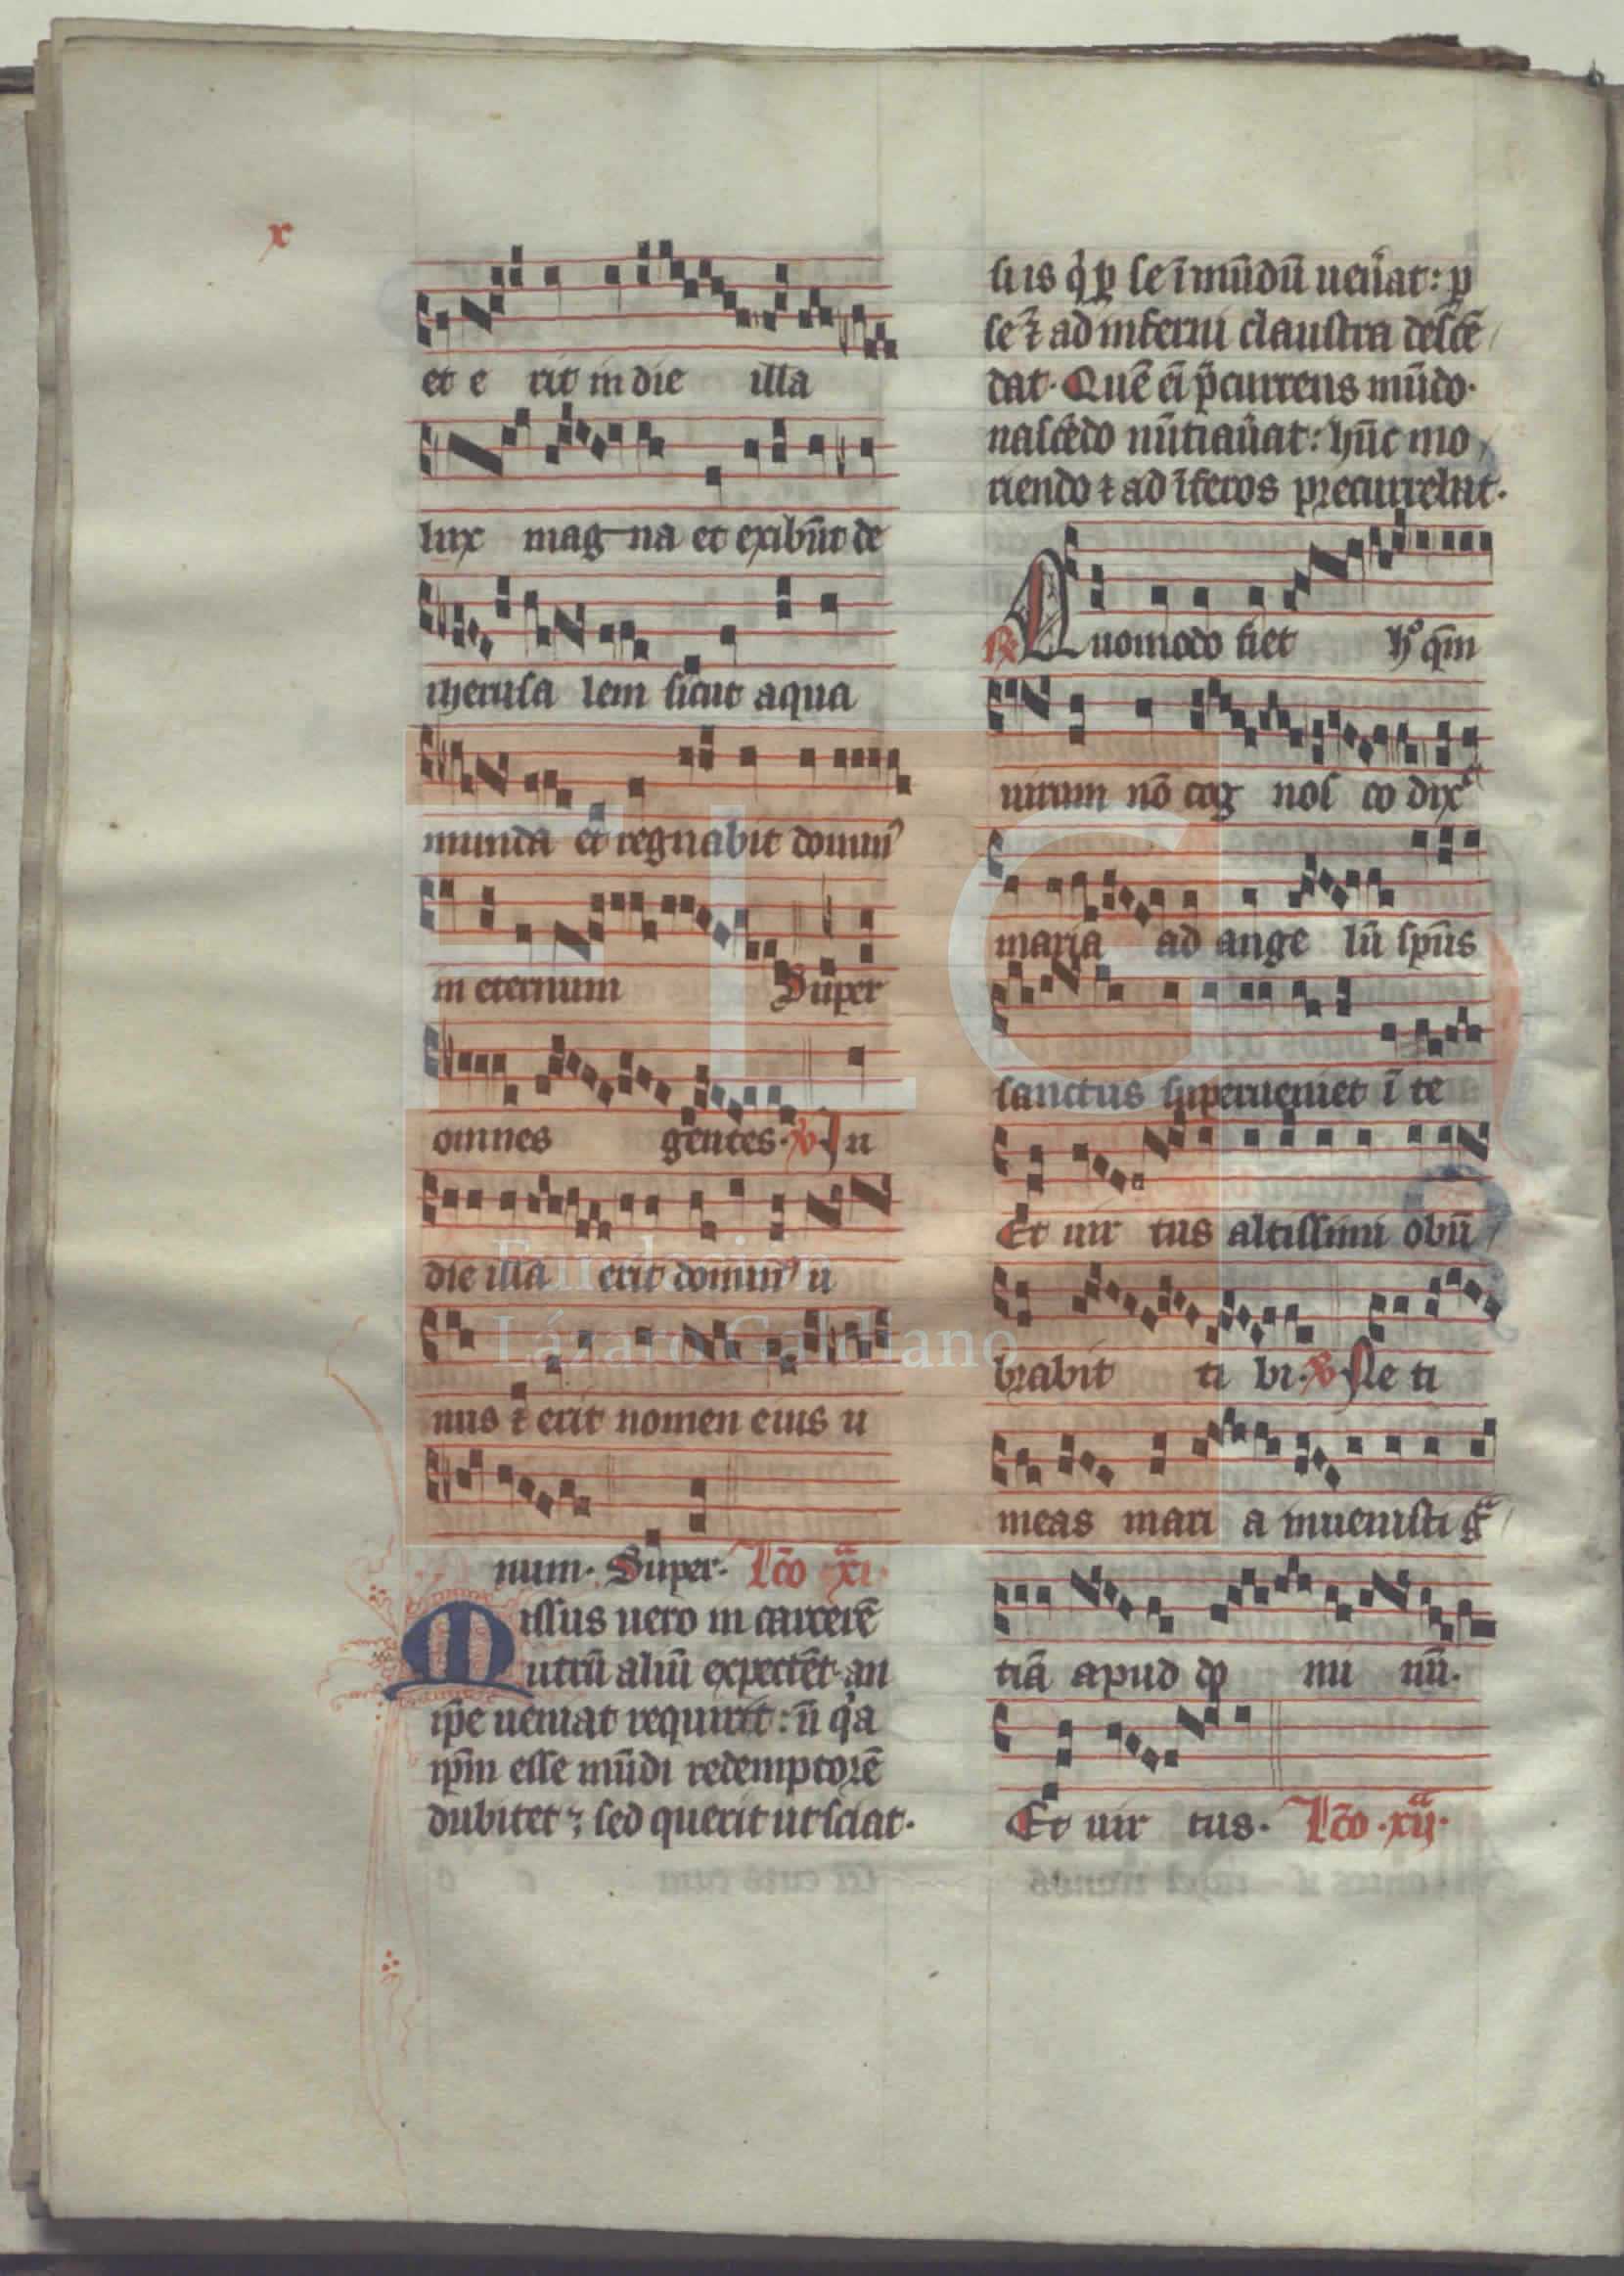 x
et e rit in die illa
lux mag na et exibūt de
iherusa lem sicut aqua
munda et regnabit domin᾽
in eternum Super
omnes gentes. V. In
die illa erit domin᾽ u
nus ⁊ erit nomen eius u
num. Super. Lc̄o xi.ᵃ
Missus uero in carcerē
utrū aliū expectēt an
ip̄e ueniat requirit: n̄ qͥa
ip̄m esse mūdi redemptorē
dubitet; sed querit ut sciat.
si is qͥ ꝑ se ī mūdū uen̄at: ꝑ
se ⁊ ad inferni claustra descē
dat. Quē eī p̄currens mūdo.
nascēdo nūtiau̅at: hūc mo
riendo ⁊ ad īferos precurrebat.
R Quomodo fiet h° qm̄
uirum nō cog nos co dix᾽
maria ad ange lū sp̄us
sanctus superueniet ī te
Et uir tus altissimi obū
brabit ti bi. V. Ne ti
meas mari a inuenisti gᵃ
tiā apud do mi nū.
Et uir tus. Lc̄o .xij.ᵃ
FLG
Fundación
Lázaro Galdiano